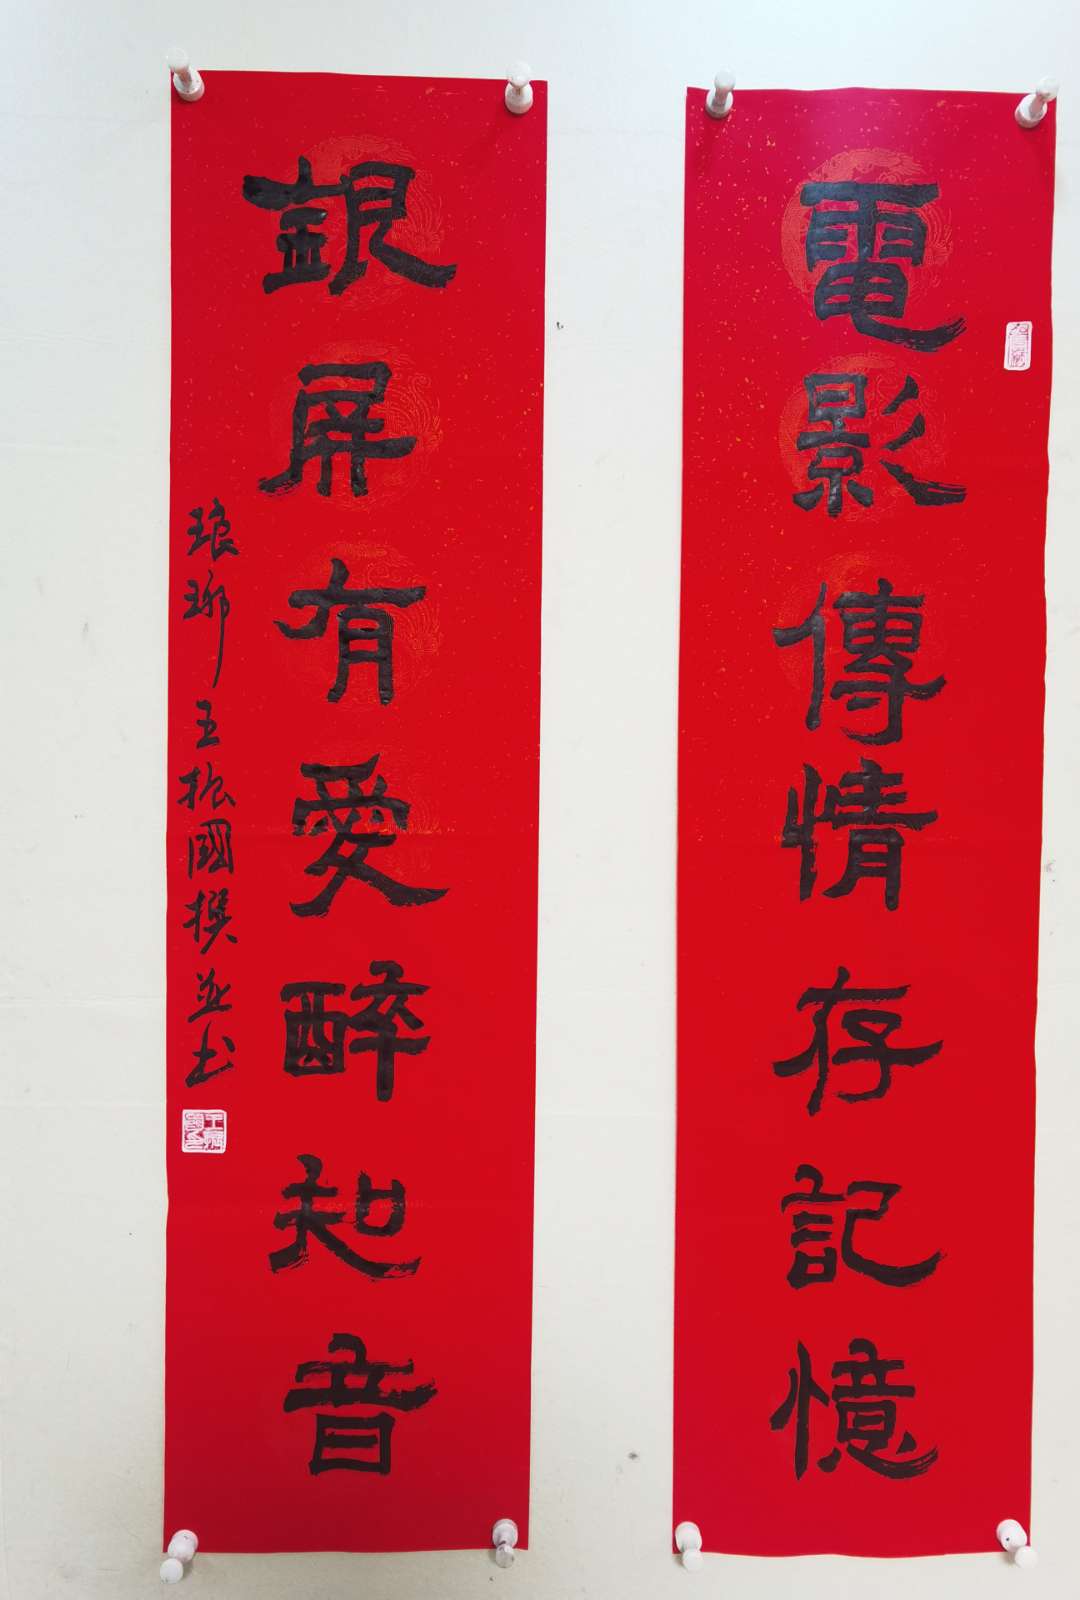 電影傳情存記憶
銀屏有愛醉知音
琅琊王振國撰並書